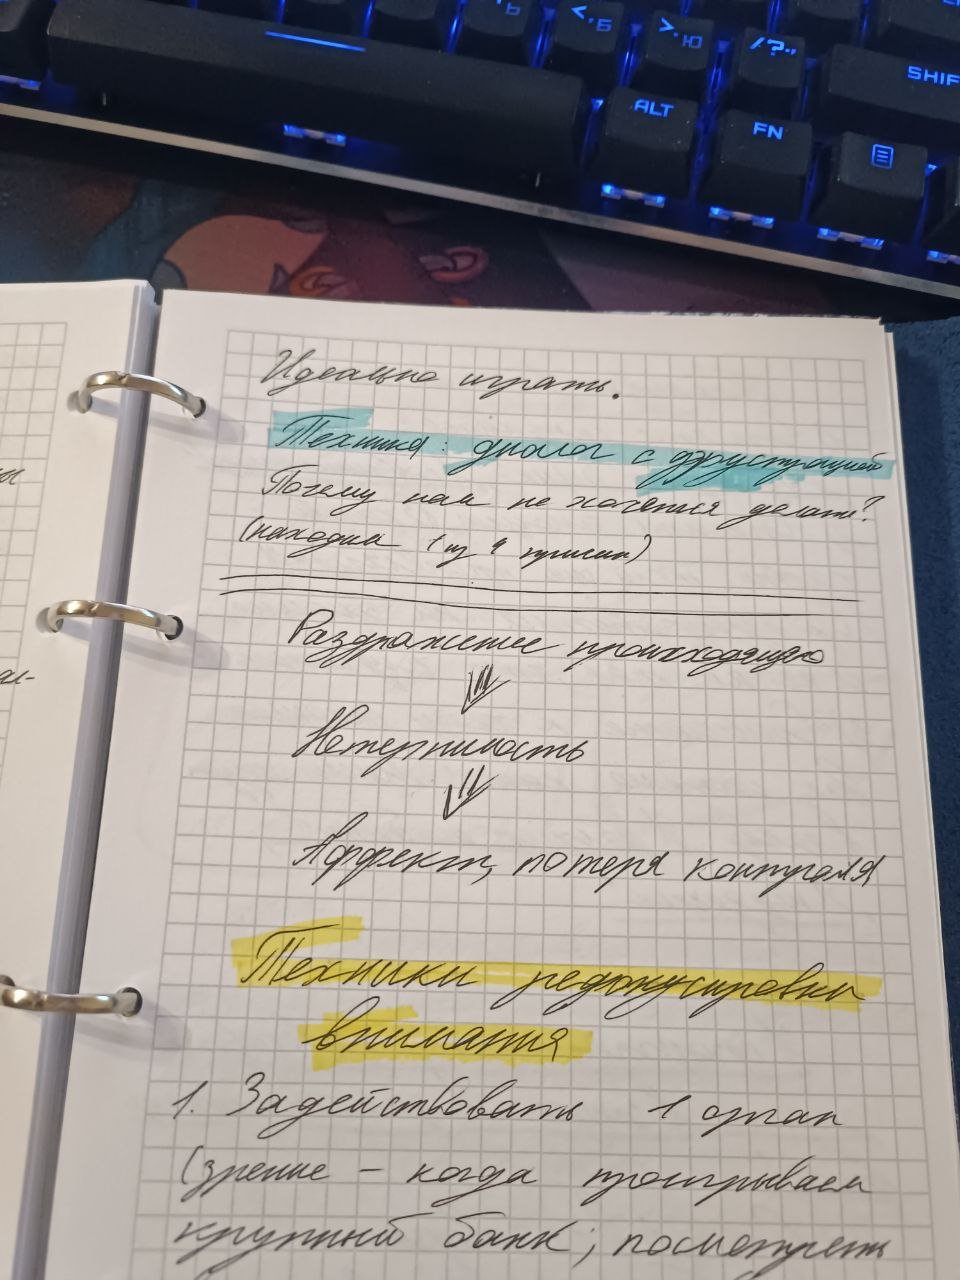 Ь
< , Б
> . Ю
/ ? . ,
SHIF
ALT
FN
Идеально играть.
Техника: диалог с фрустрацией
Почему нам не хочется делать?
(находим 1 из 4 причин)
Раздражение происходящего
Нетерпимость
Аффект, потеря контроля
Техники рефокусировки
внимания
1. Задействовать 1 орган
(зрение – когда проигрываем
крупный банк, посмотреть
ал-